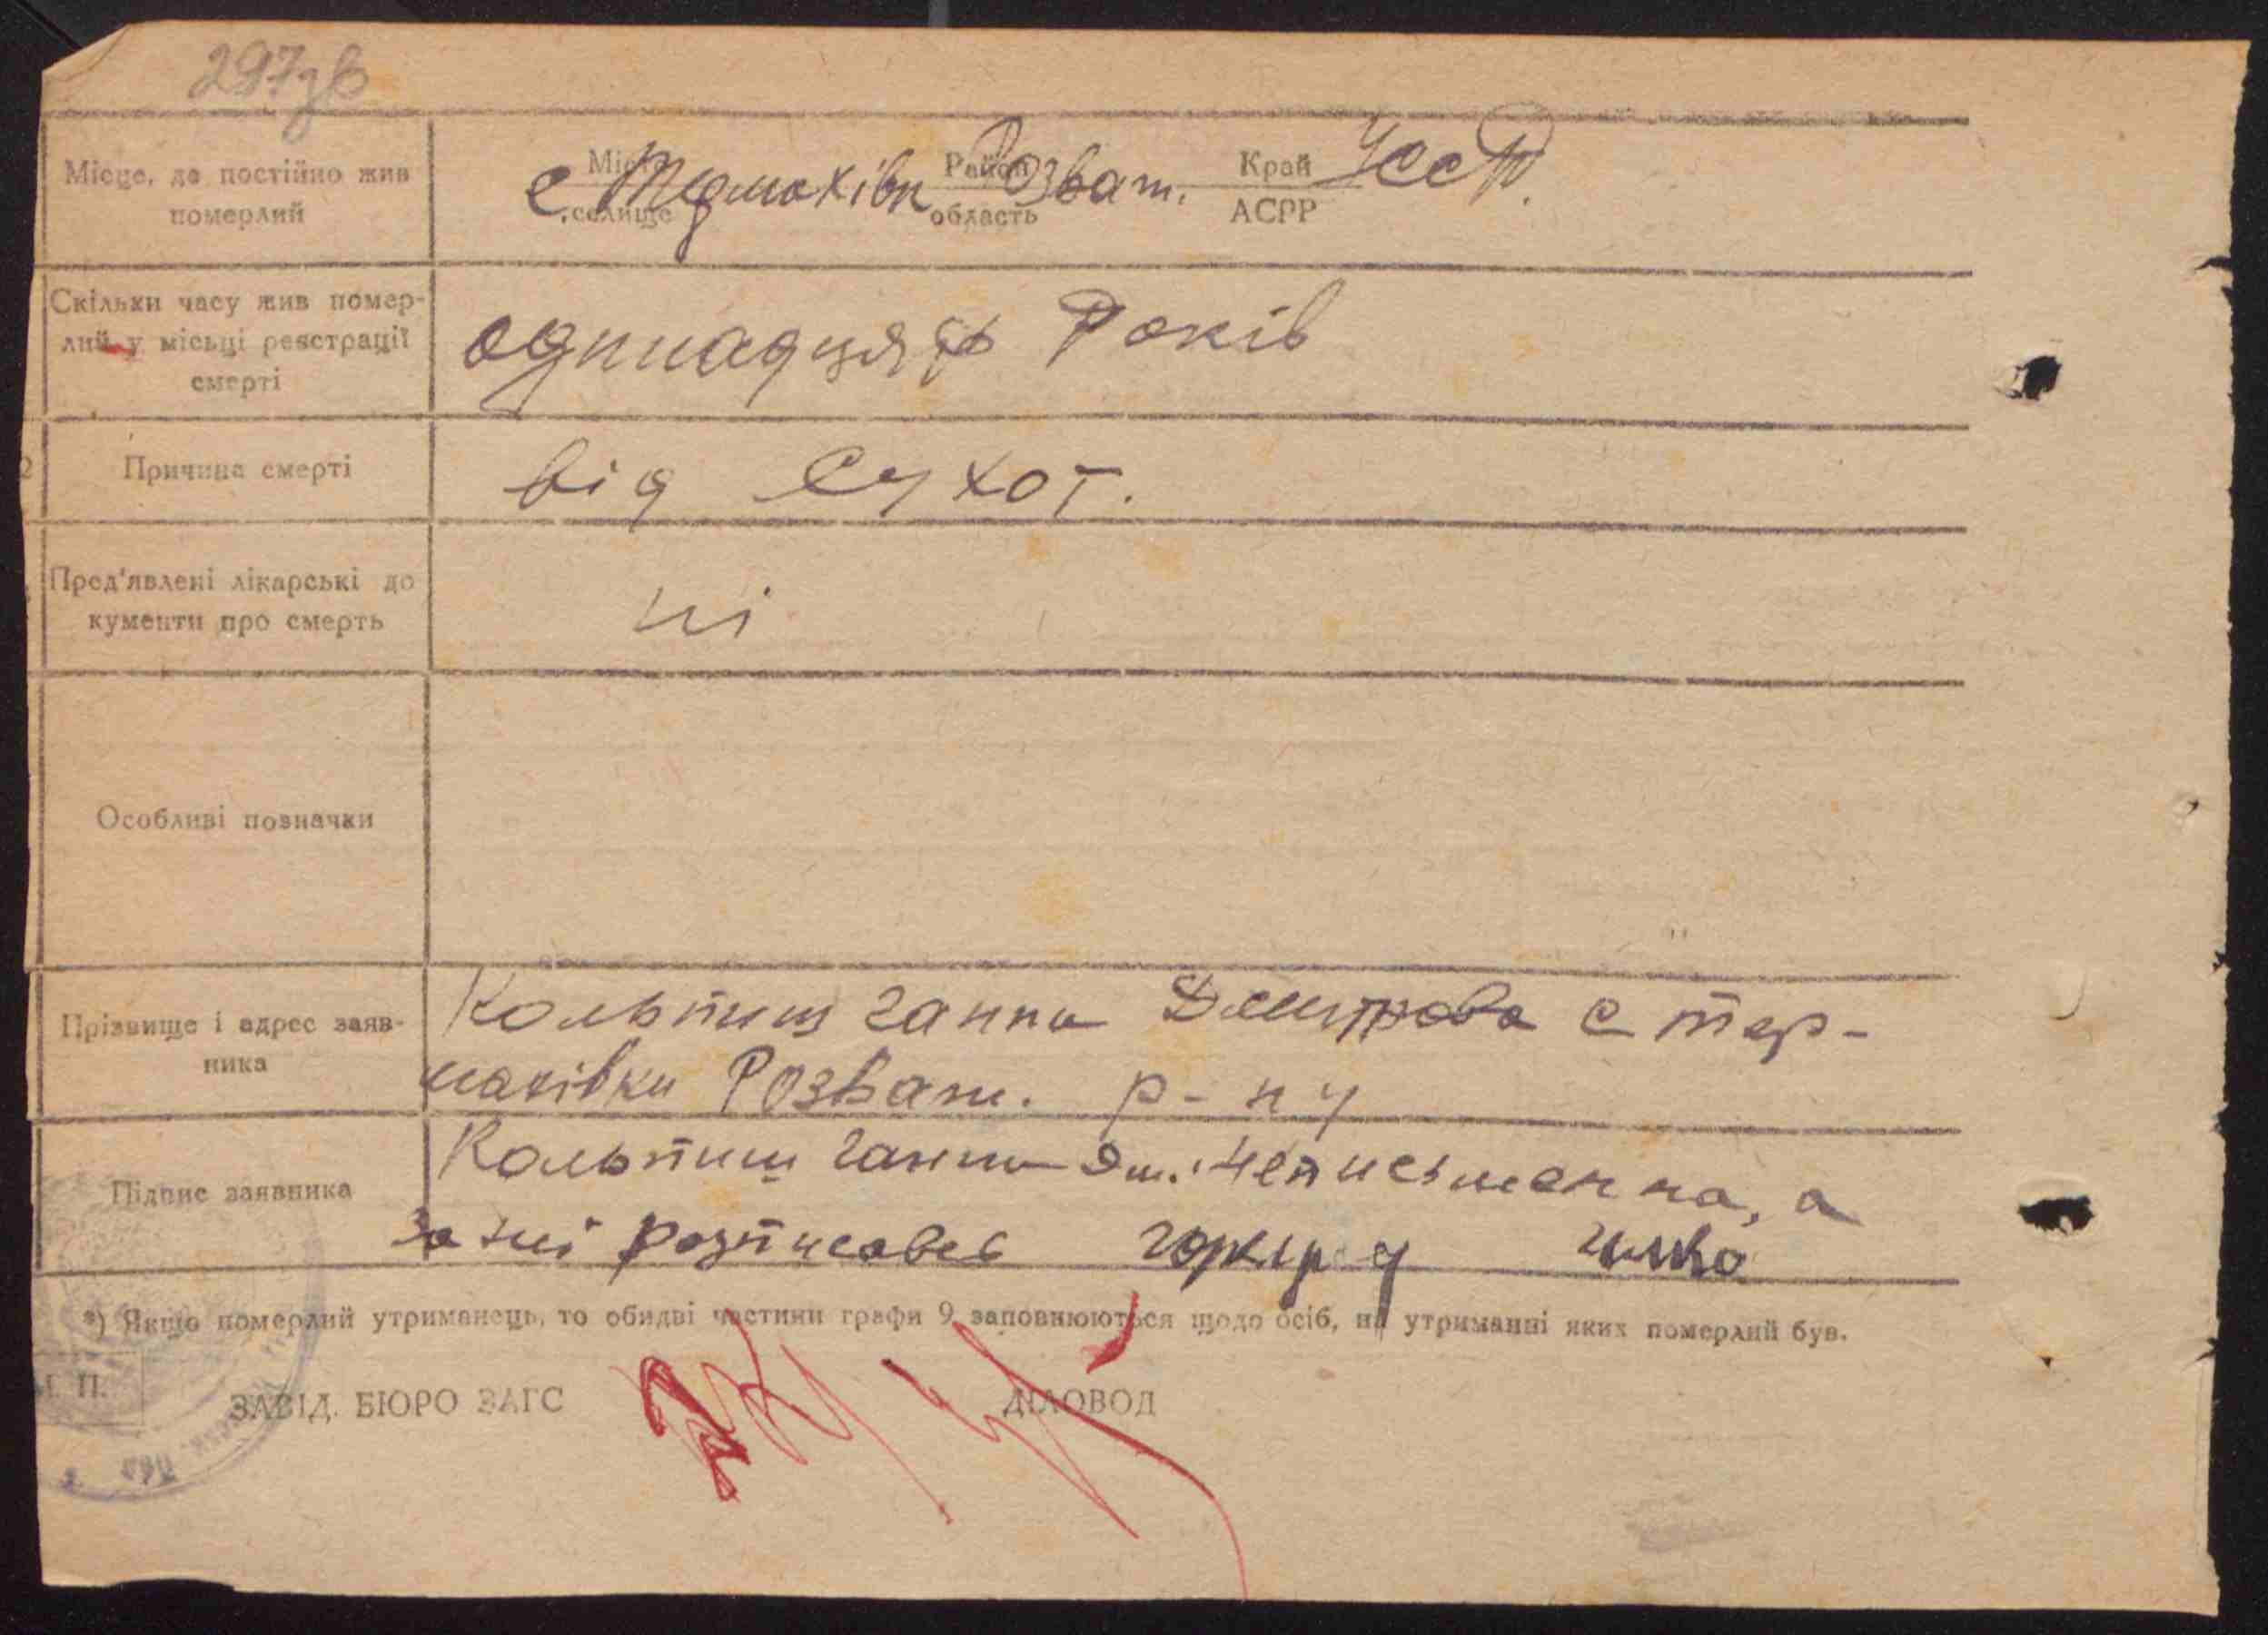 297зв
Місце, де постійно жив
померлий
селище
Район
область
Край
АСРР
с Термахівк Розваж. УССР.
Скільки часу жив помер-
лий у місьці реєстрації
смерті
одинадцять Років
Причина смерті
від Сухот.
Пред'явлені лікарські до
кументи про смерть
ні
Особливі позначки
Прізвище і адрес заяв-
ника
Ганна Дмитрова с Тер-
махівки Розваж. р-ну
Підпис заявника
Ганна Дм. Неписьменна, а
за неї розписавсь
*) Якщо померлий утриманець, то обидві частини графи 9 заповнюються щодо осіб, на утриманні яких померлий був.
М. П.
ЗАВІД. БЮРО ЗАГС
ДІЛОВОД